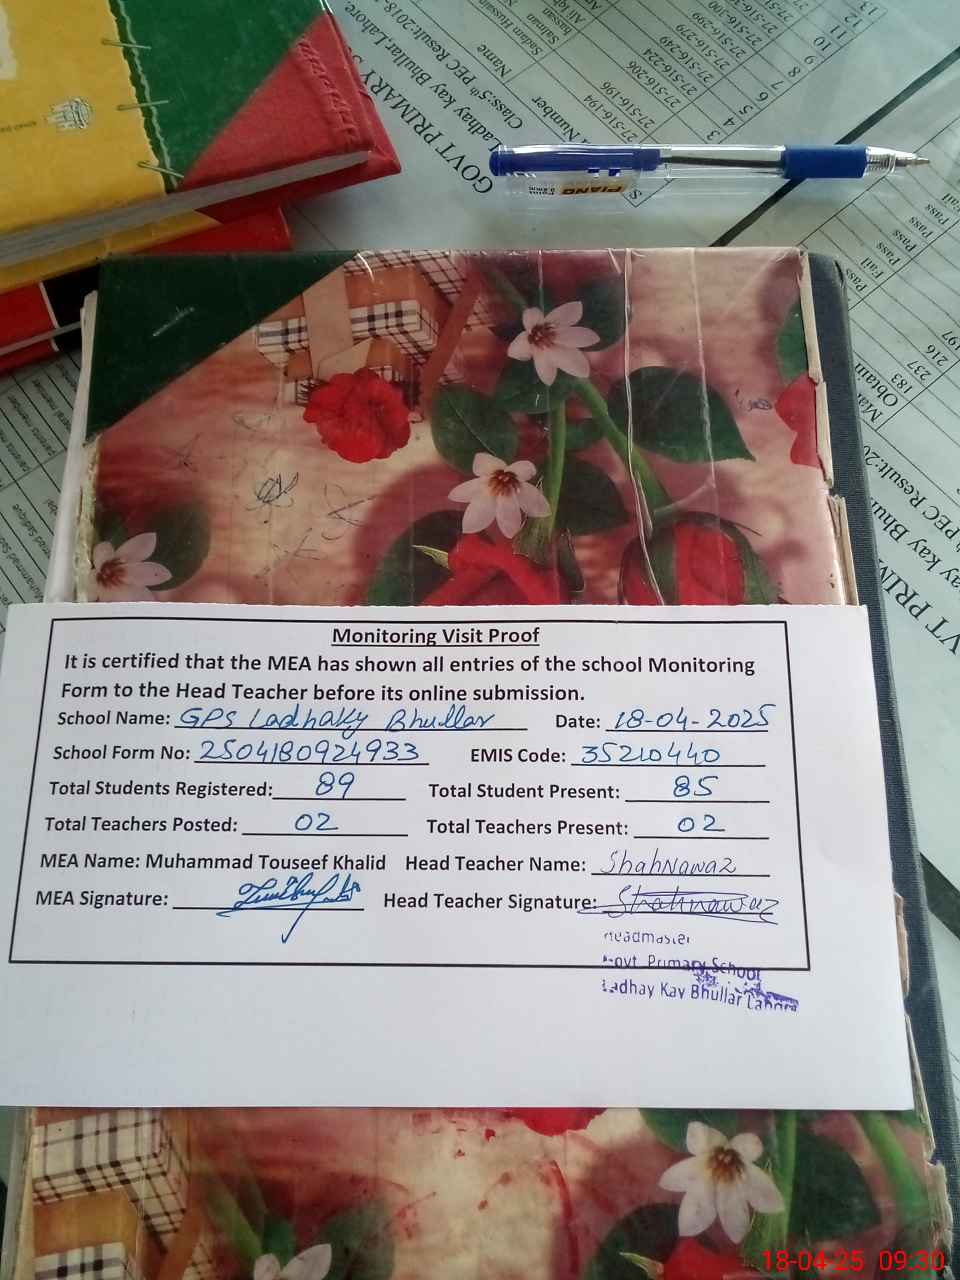 GOVT PRIMARY
Ladhay kay Bhullar, Lahore.
Class:5th PEC Result:2018-
Number
Name
Sadam Hussain
Salman
Ali
27-516-194
27-516-196
27-516-206
27-516-224
27-516-249
27-516-266
27-516-279
27-516-299
27-516-300
3
4
5
6
7
8
9
10
11
12
13
PIANO
Point
Pass
Fail
Pass
Pass
Fail
Obtain
183
237
216
197
PEC Result:20
kay Bhull
VT PRIM
Monitoring Visit Proof
It is certified that the MEA has shown all entries of the school Monitoring
Form to the Head Teacher before its online submission.
School Name: GPS Ladhaky Bhullar Date: 18-04-2025
School Form No: 2504180924933 EMIS Code: 35210440
Total Students Registered: 89 Total Student Present: 85
Total Teachers Posted: 02 Total Teachers Present: 02
MEA Name: Muhammad Touseef Khalid Head Teacher Name: Shahnawaz
MEA Signature: Head Teacher Signature: Shahnawaz
Headmaster
Govt. Primary School
Ladhay Kay Bhullar Lahore
18-04-25 09:30